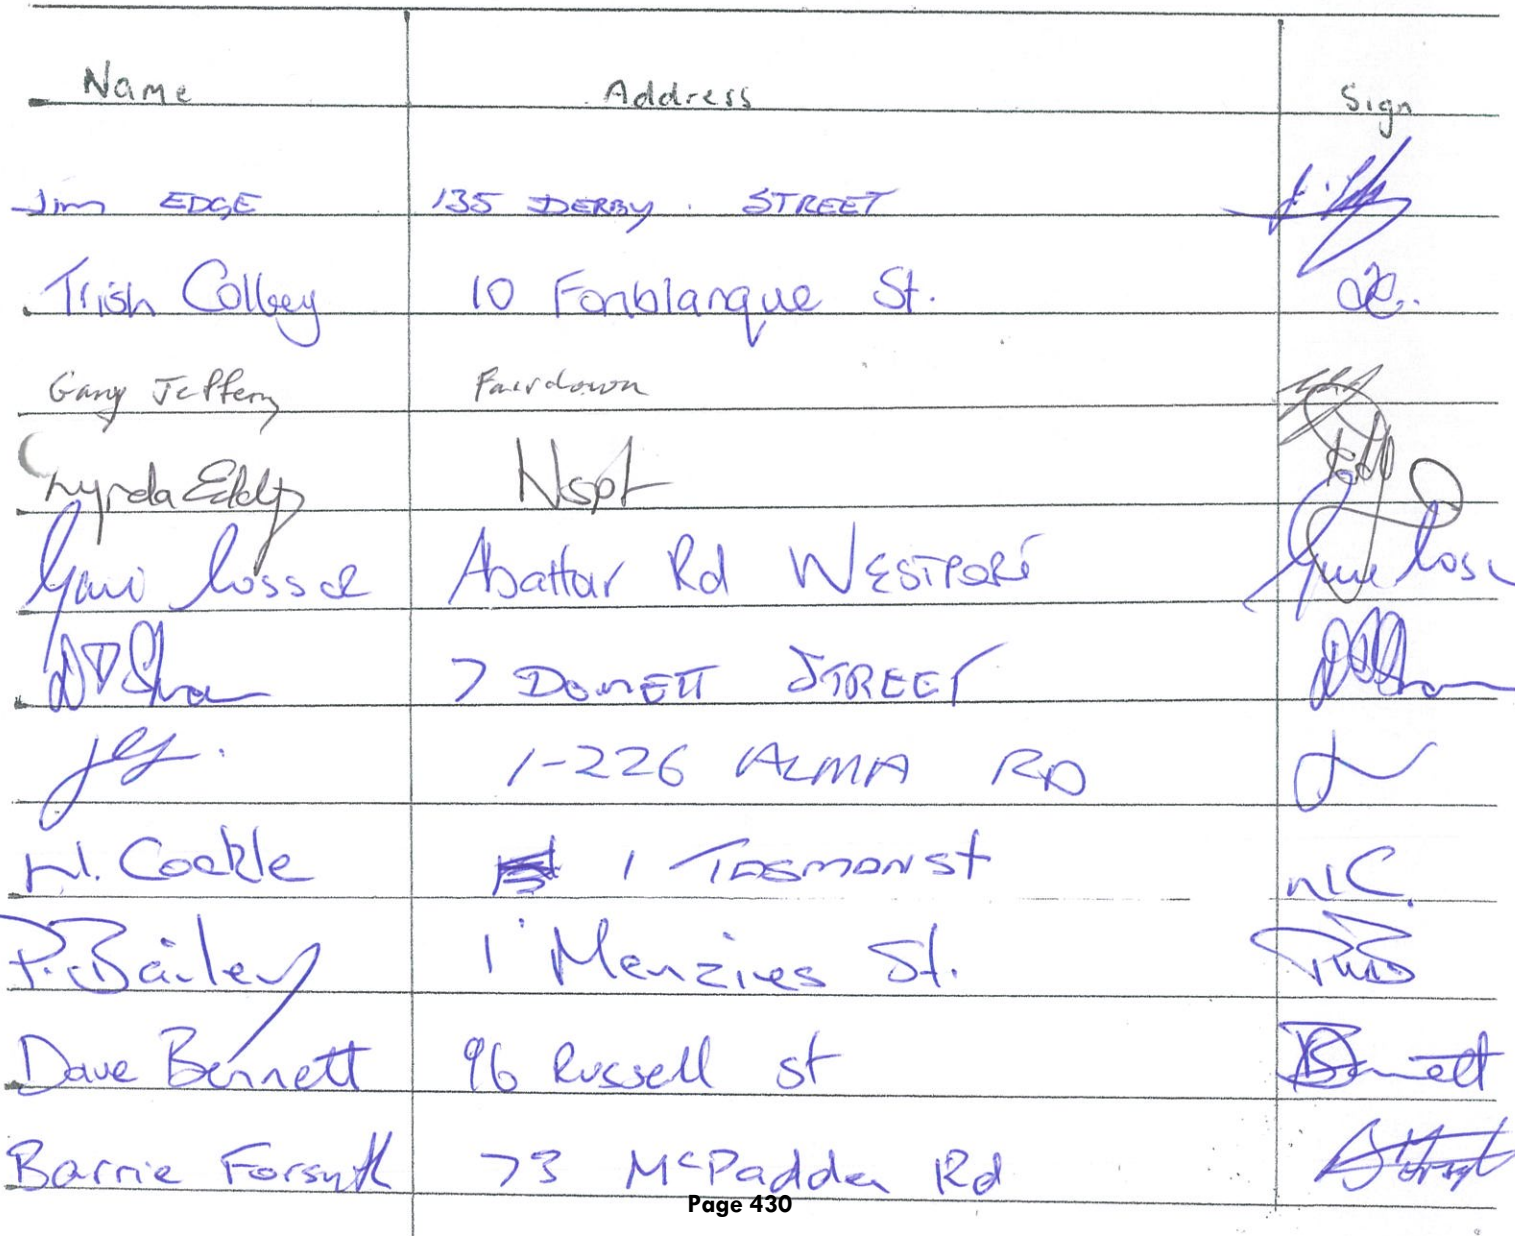 Name Address Sign
Jim EDGE 135 DERBY STREET
Trish Colley 10 Fonblanque St.
Gary Jeffery Fairdown
Lynda Eddy Nspt
Abattar Rd WESTPORT
7 DOMETT STREET
1-226 ALMA RD
N. Cockle 1 Tasman st NC.
P. Bailey 1 Menzies St.
Dave Bennett 96 Russell st Bennett
Barrie Forsyth 73 McPadden Rd
Page 430